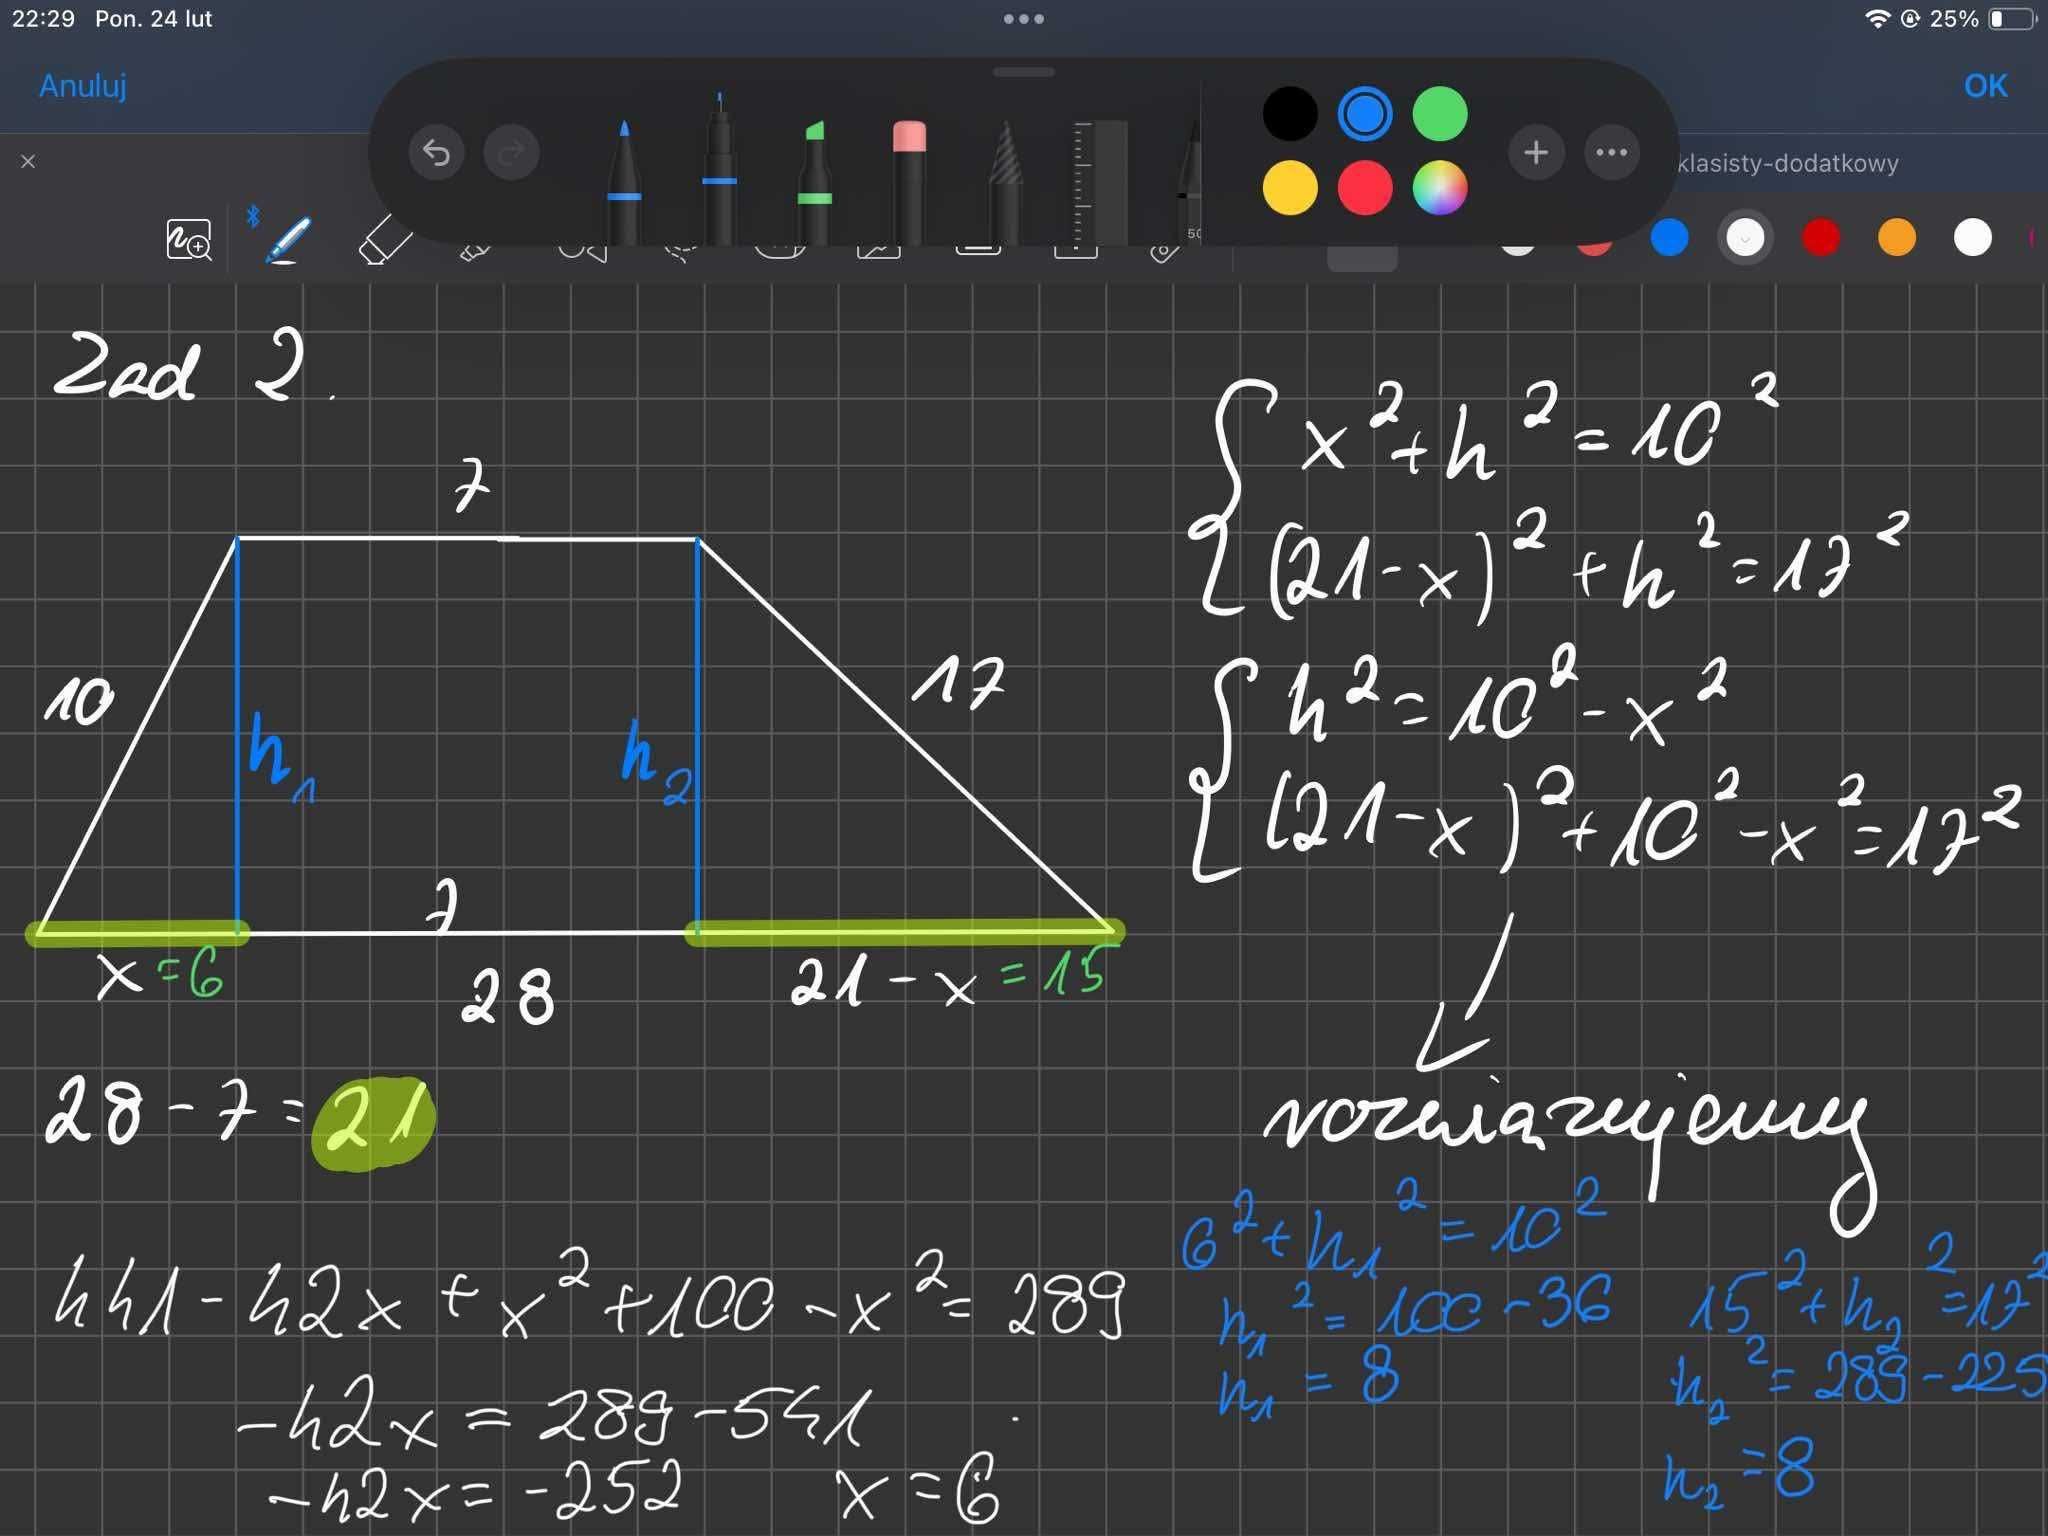 22:29 Pon. 24 lut
25%
Anuluj
OK
klasisty-dodatkowy
50
Zad 2.
7
10
h₁
h₂
17
7
x = 6
28
21 - x = 15
28 - 7 = 21
441 - 42x + x² + 100 - x² = 289
-42x = 289 - 541
-42x = -252
x = 6
x² + h² = 10²
(21 - x)² + h² = 17²
h² = 10² - x²
(21 - x)² + 10² - x² = 17²
rozwiązujemy
6² + h₁² = 10²
h₁² = 100 - 36
h₁ = 8
15² + h₂² = 17²
h₂² = 289 - 225
h₂ = 8